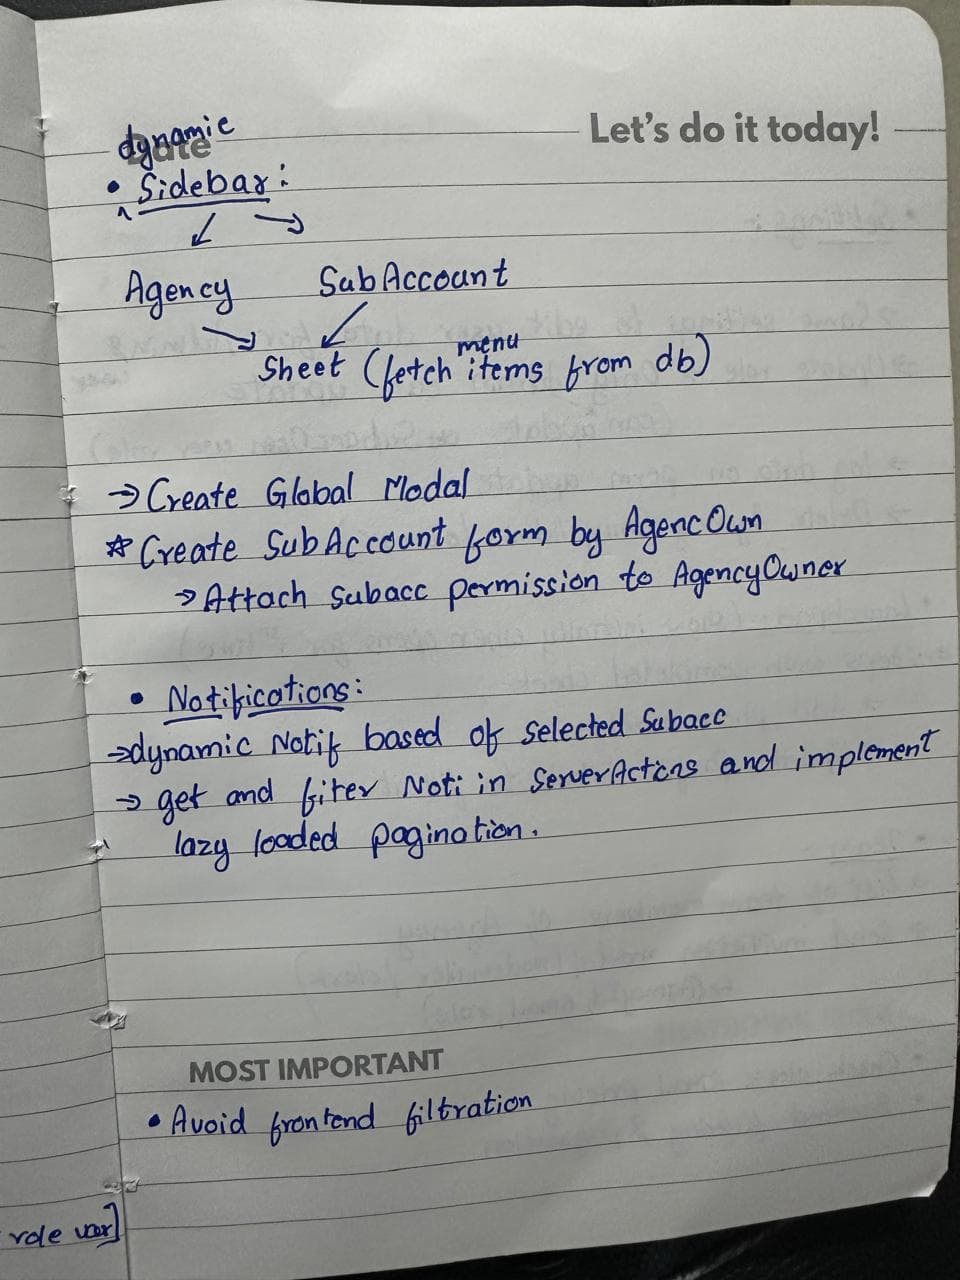 Let's do it today!
Date
dynamic
• Sidebar:
Agency SubAccount
Sheet (fetch menu items from db)
→ Create Global Modal
☆ Create SubAccount form by AgencOwn
→ Attach subacc permission to AgencyOwner
• Notifications:
→ dynamic Notif based of selected Subacc
→ get and filter Noti in ServerActions and implement
lazy loaded pagination.
MOST IMPORTANT
• Avoid frontend filtration
role